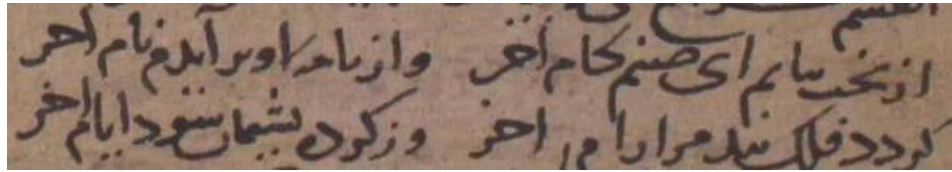 از بخت بیابم ای صنم کام آخر واز او بر آیدم نام آخر
کردد فلک تند مرا رام اخر وز کرده پشیمان شود ایام آخر